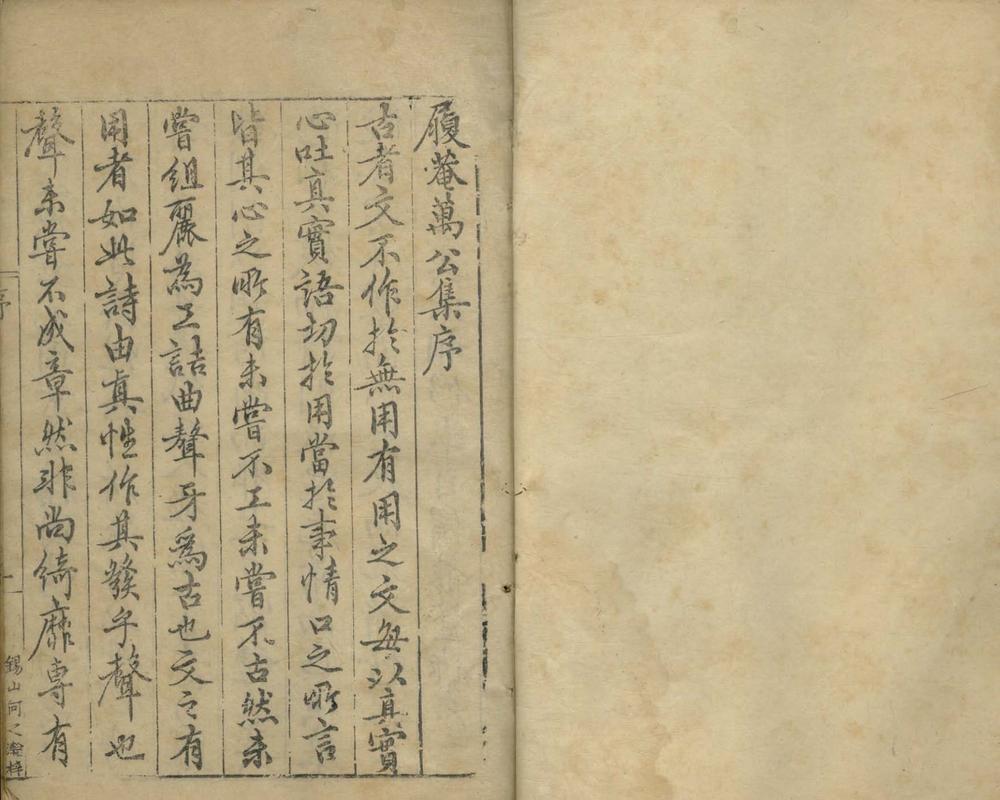 履菴萬公集序
古者文不作於無用有用之文每以真實
心吐真實語切於用當於事情口之所言
皆其心之所有未嘗不工未嘗不古然未
嘗組麗為工詰曲聱牙為古也文之有
用者如此詩由真性作其發乎聲也
聲未嘗不成章然非尚綺靡専有
序
一
錫山何之瀹梓